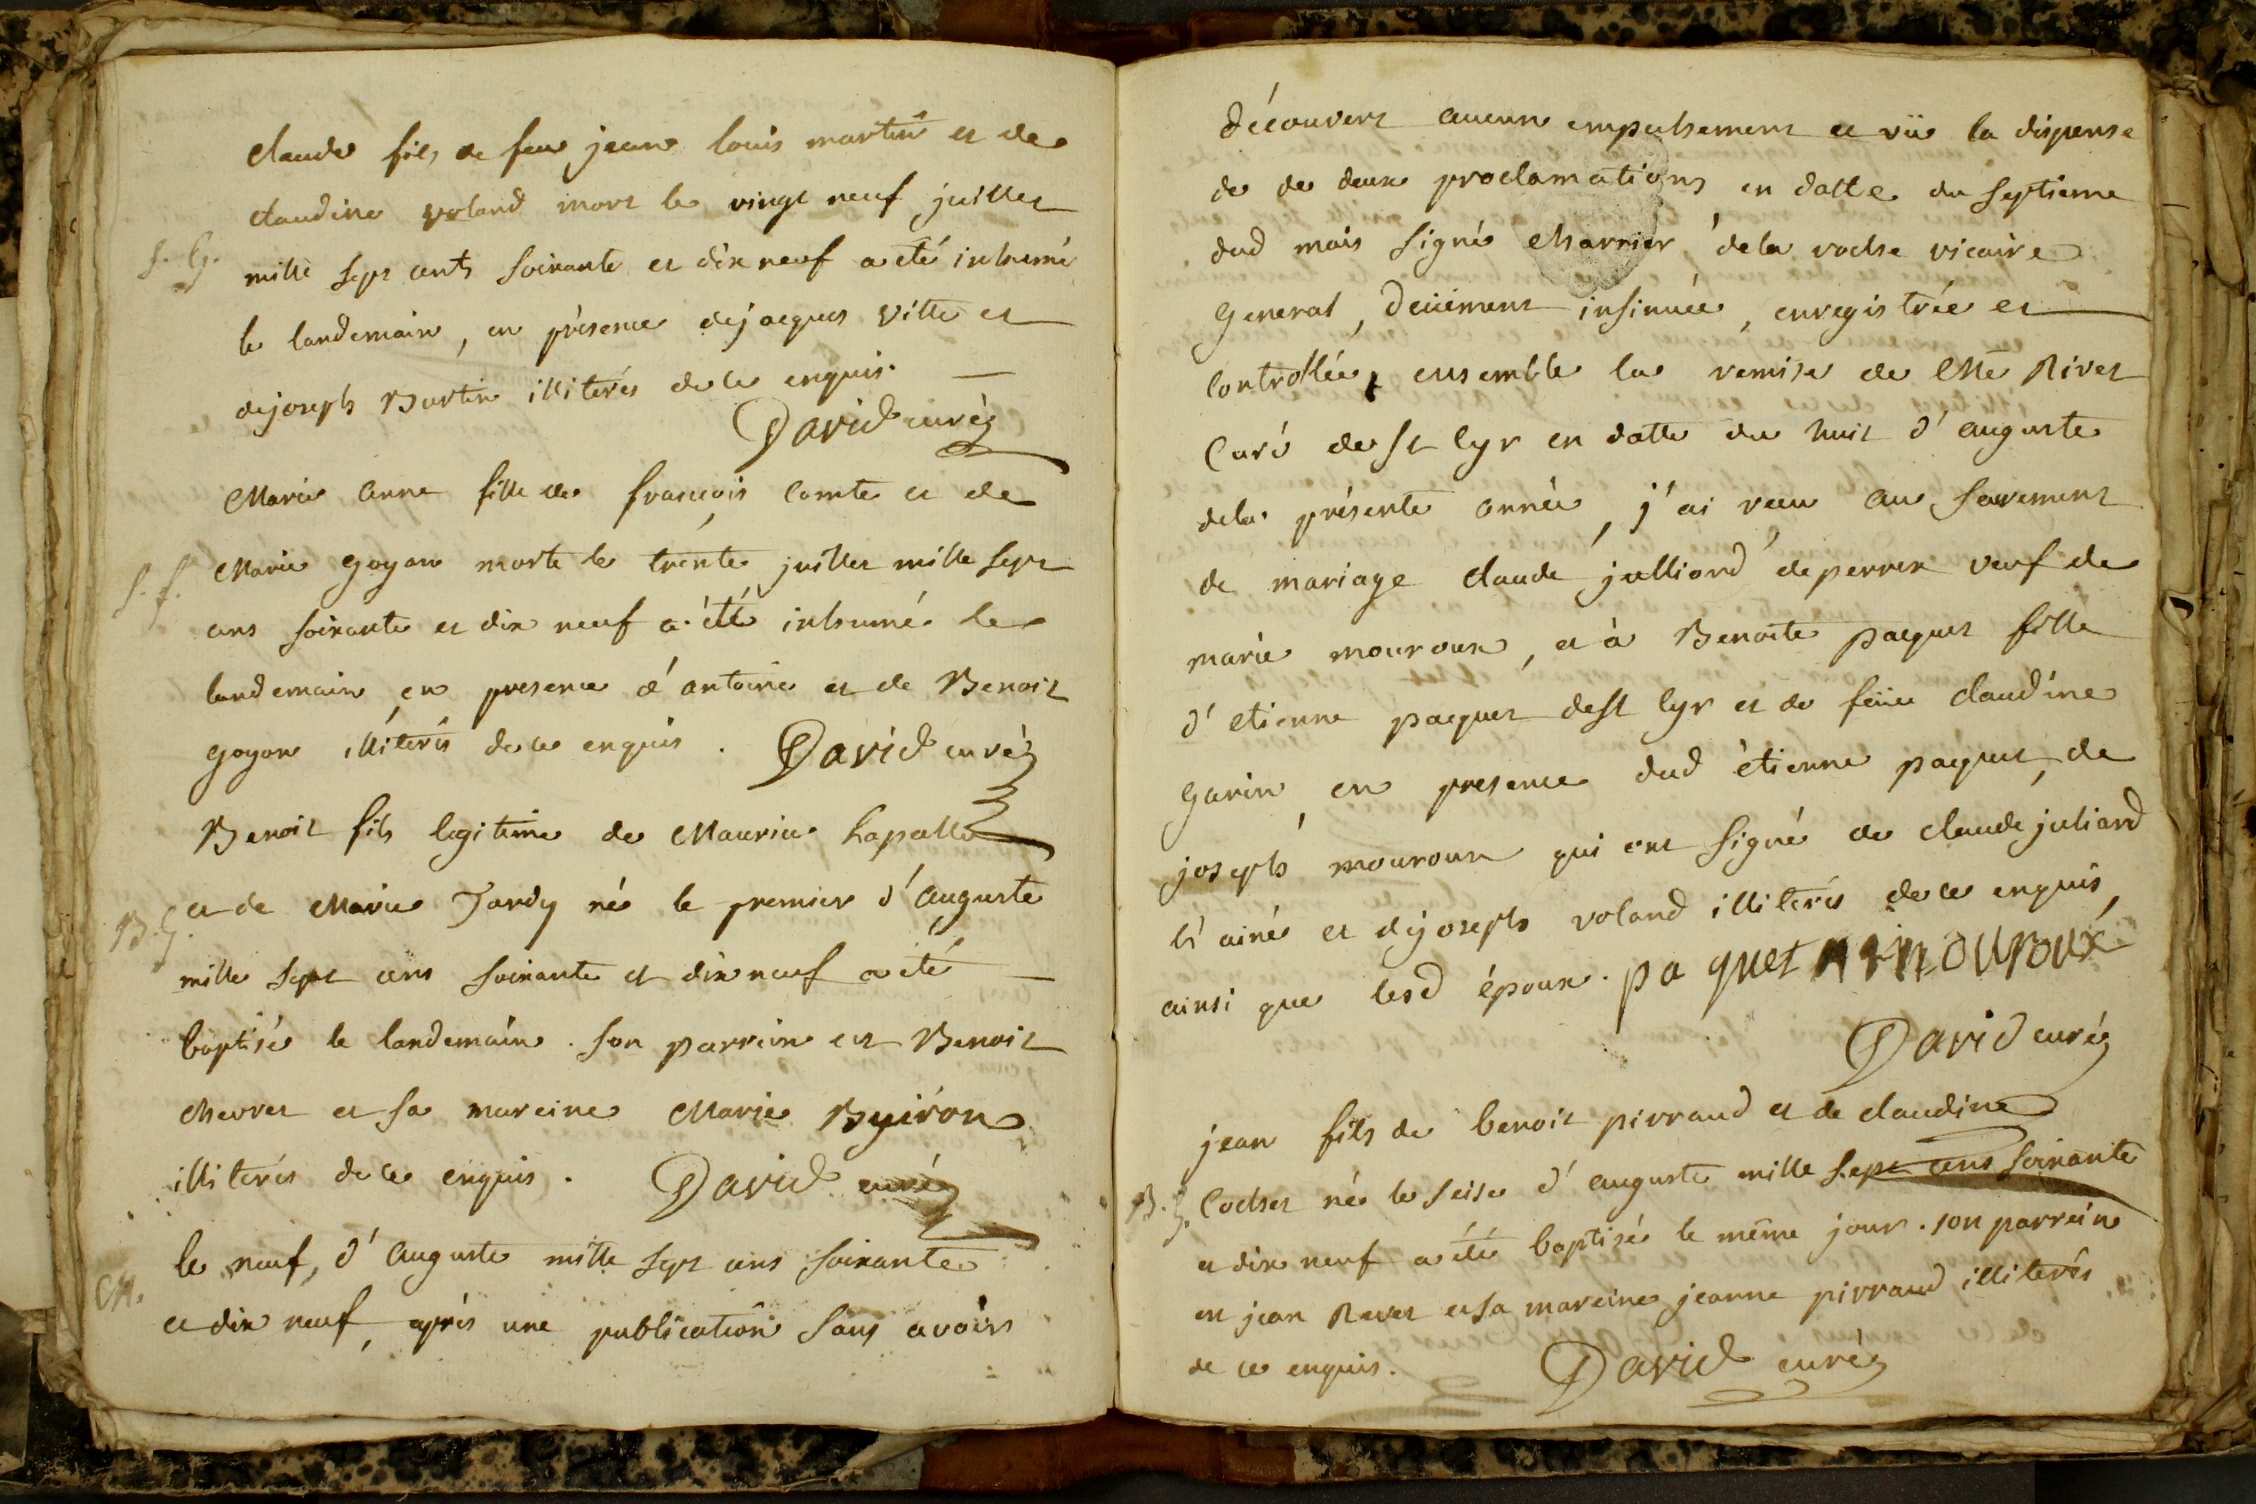 claude fils de feu jean louis martin et de
claudine voland mort le vingt neuf juillet
S. G.
mille sept cents soixante et dix neuf a été inhumé
le landemain, en présence de jacques Ville et
de joseph Burtin illiterés de ce enquis.
David curé
Marie anne fille de françois comte et de
S. f.
Marie goyon morte le trente juillet mille sept
cens soixante et dix neuf a été inhumé le
landemain en presence d'antoine et de Benoit
goyon illiterés de ce enquis. David curé
Benoit fils legitime de Maurice Lapalle
B. G.
et de Marie Tardy né le premier d'auguste
mille sept cens soixante et dix neuf a été
baptisé le landemain. son parrein est Benoit
chevret et sa mareine Marie Buiron
illiterés de ce enquis. David curé
M.
le neuf, d'auguste mille sept cens soixante
et dix neuf, après une publication sans avoir
découvert aucun empechement et vüe la dispense
de de deux proclamations en datte du septieme
dud mois signé charrier dela roche vicaire
general, deüement insinuée, enregistrée et
controllée, ensemble la remise de Mre Rivet
curé de st cyr en datte du huit d'auguste
dela présente année, j'ai reçu au sacrement
de mariage claude julliard de perrex veuf de
marie mouroux, et à Benoite paquet fille
d'etienne paquet de st cyr et de feüe claudine
garin, en presence dud étienne paquet, de
joseph mouroux qui ont signé de claude juliard
l'ainé et de joseph voland illiterés de ce enquis,
ainsi que lesd époux. pa quet mouroux
David curé
jean fils de benoit pirraud et de claudine
B. G.
cochet né le seise d'auguste mille sept cens soixante
et dix neuf a été baptisé le même jour. son parrein
est jean Revet et sa mareine jeanne pirraud illiterés
de ce enquis. David curé